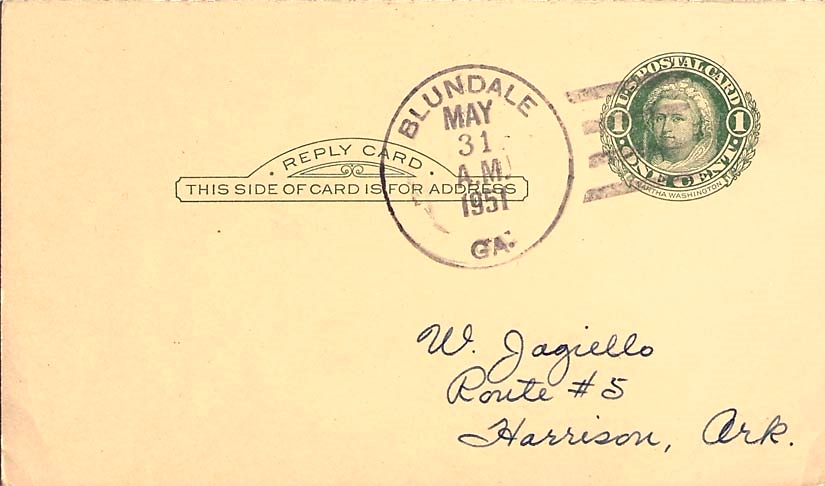 U.S. POSTAL CARD
1 1
ONE CENT
MARTHA WASHINGTON
BLUNDALE
MAY
31
A.M.
1951
GA.
REPLY CARD
THIS SIDE OF CARD IS FOR ADDRESS
W. Jagiello
Route #5
Harrison, Ark.